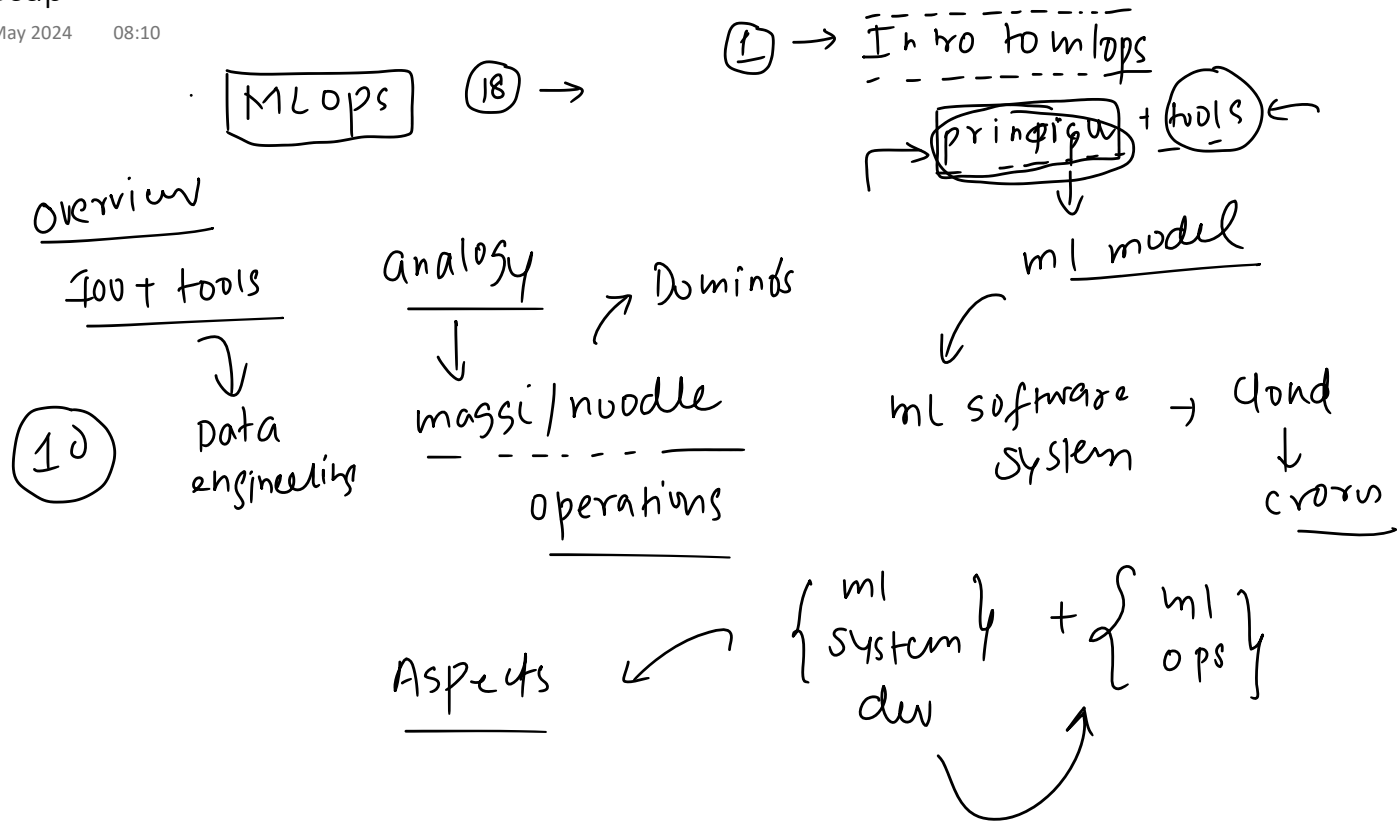 May 2024 08:10
MLOps 18
1 Intro to mlops
+ tools
ml model
overview
100+ tools
Data
engineering
10
analogy
Dominos
maggi/noodle
operations
ml software
system
cloud
crores
{ml
system}
dev
+ {ml
ops}
Aspects